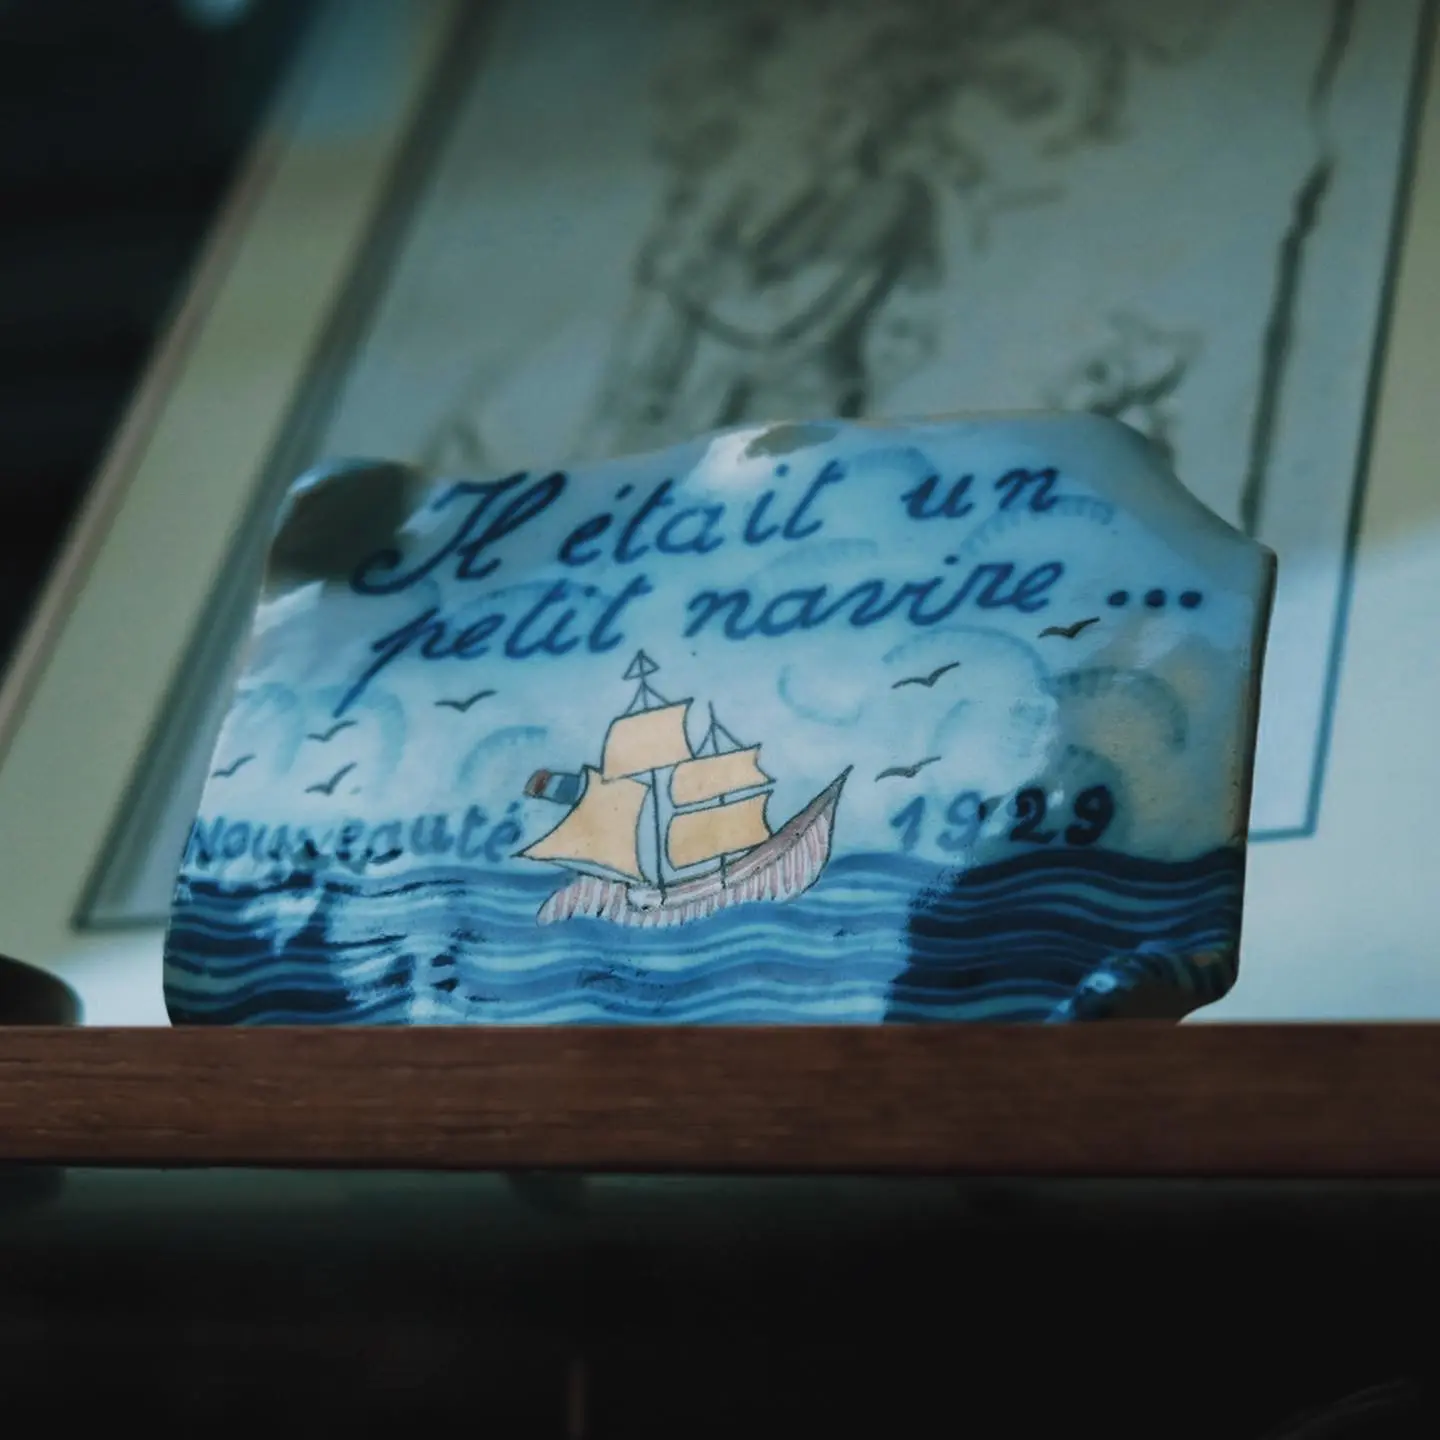 Il était un
petit navire ...
Nouveauté 1929